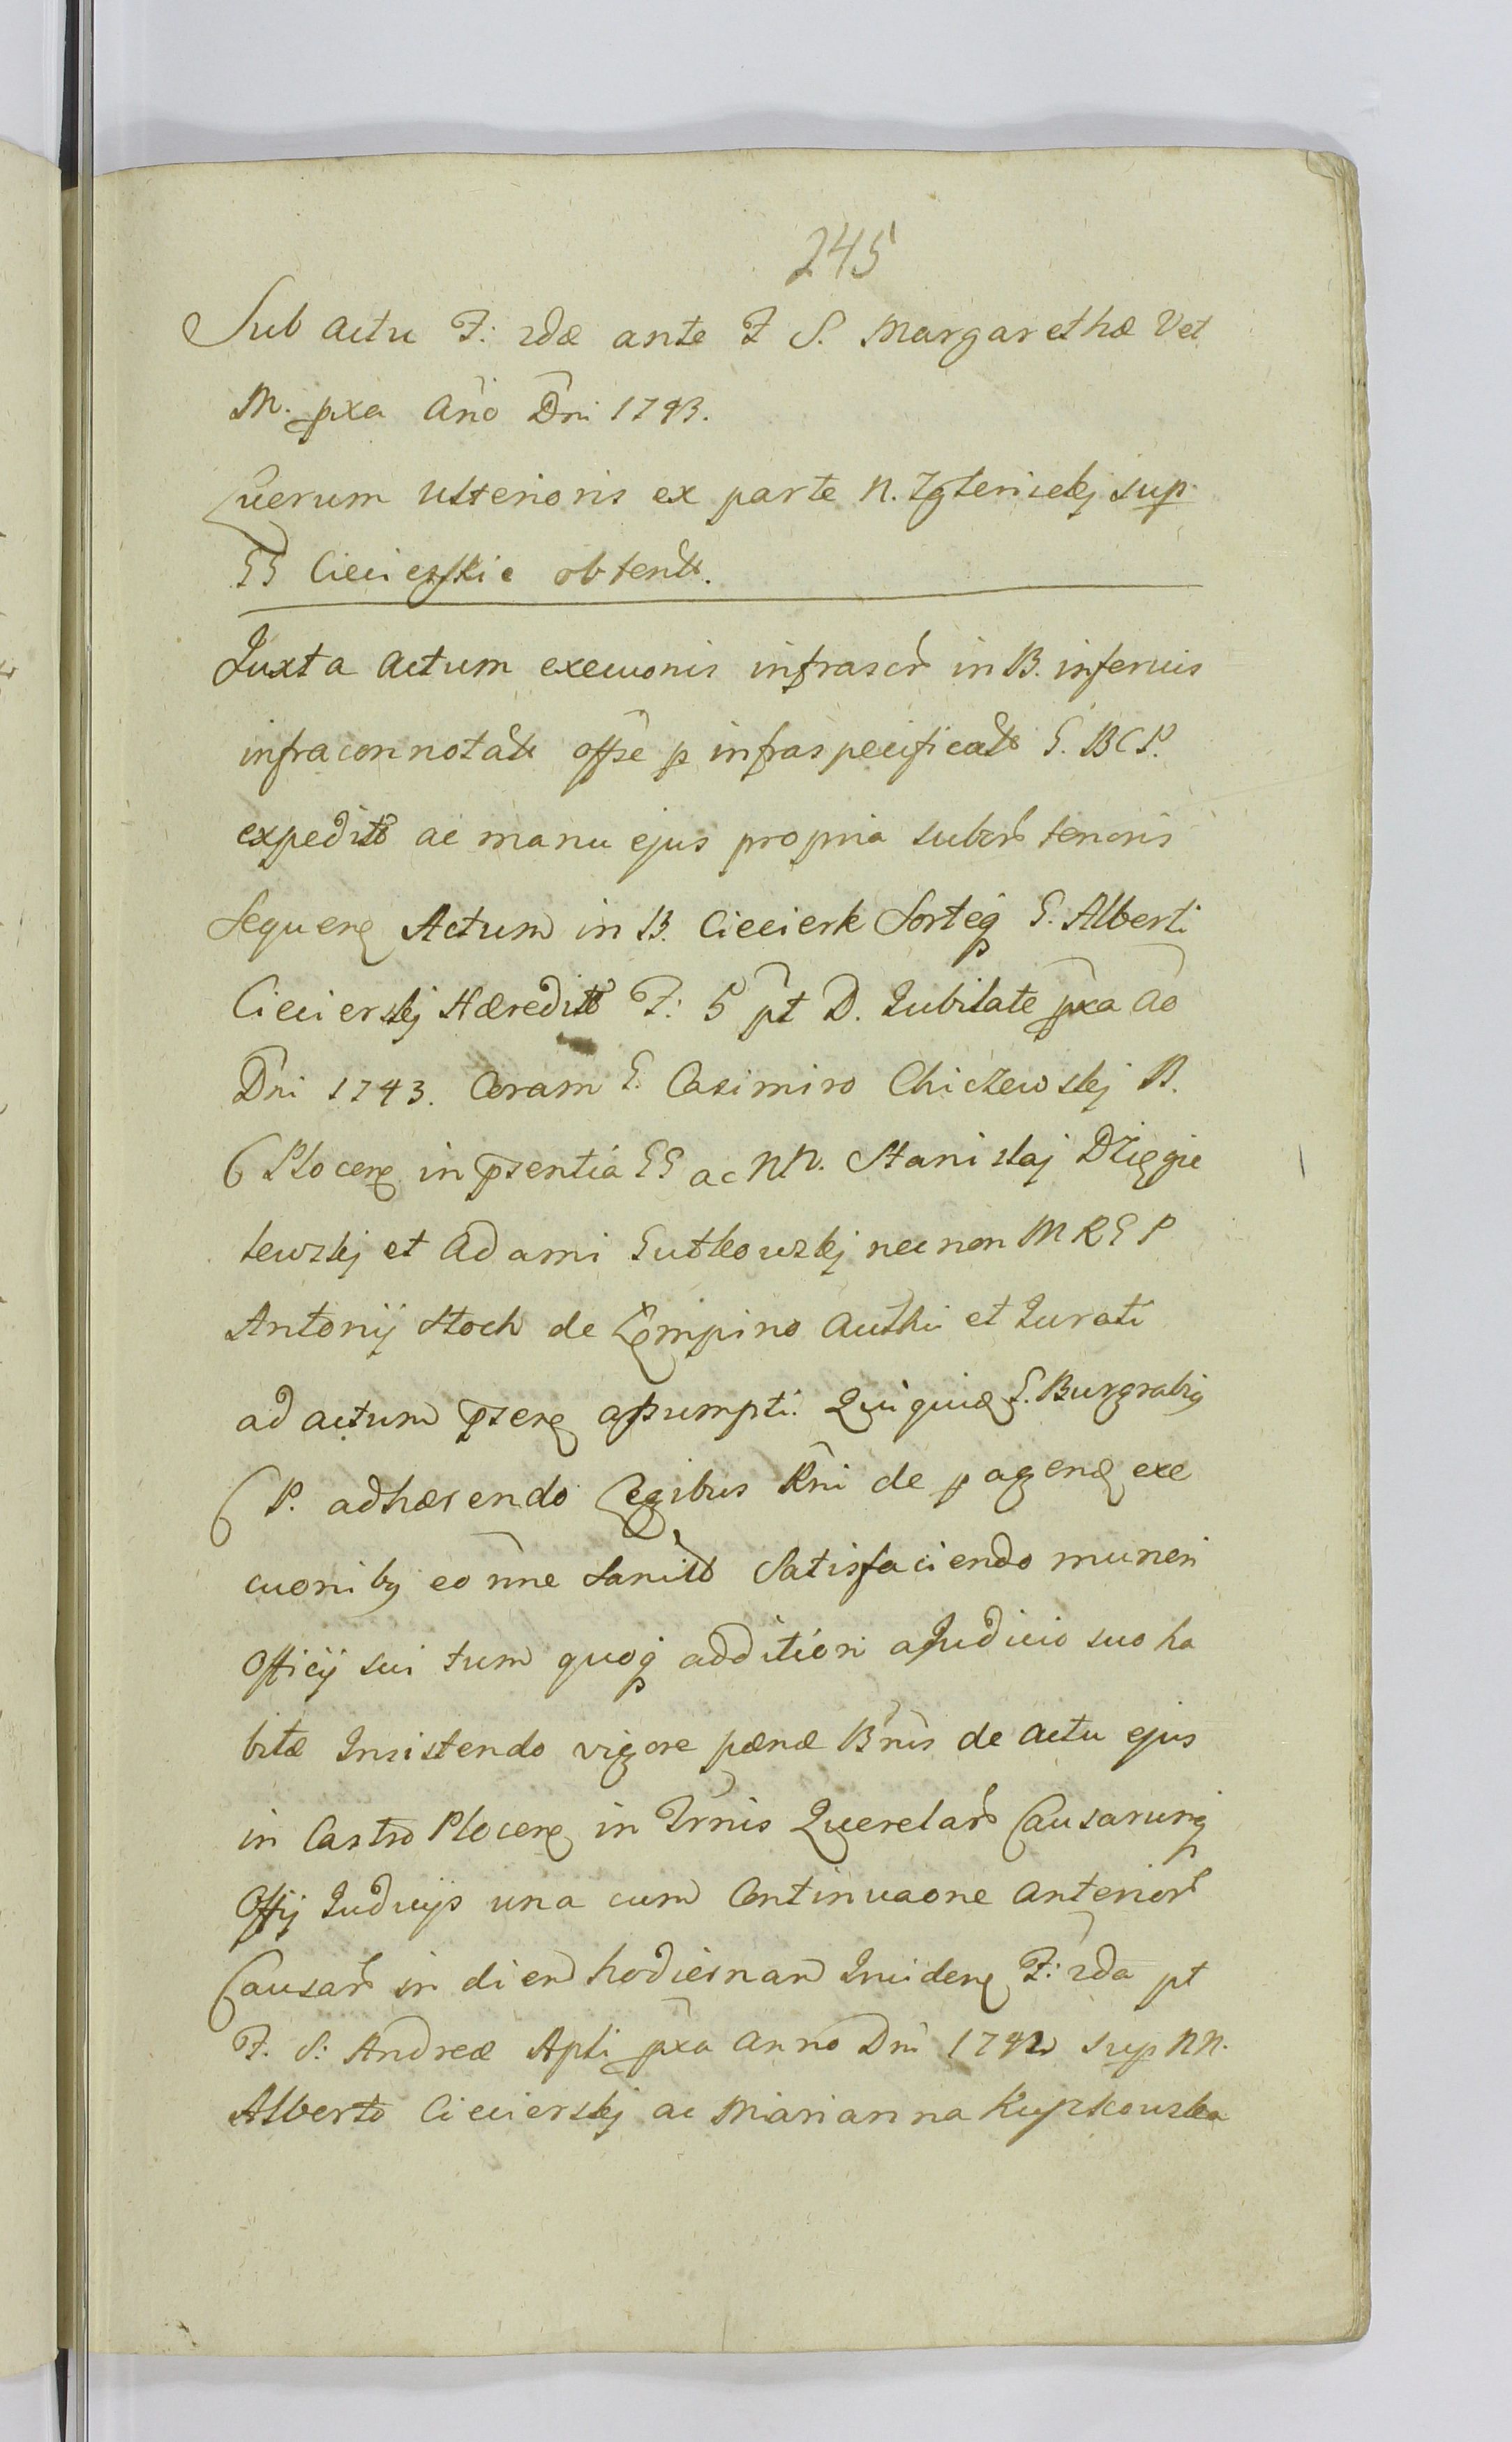 245
Sub actu F: 2dæ ante F S. Margarethæ Vet
M. pxa Año Dni 1743.
Luerum ulterioris ex parte N. Zglenickj sup
GG Ciecierskie obtent.
Juxta actum execuonis infrascr in B. inferius
infraconnotat offse p infraspecificat G. B C P.
expedit ac manu ejus propria subscr tenoris
Sequens Actum in B. Ciecierk Sorteq G. Alberti
Ciecierskj Hæredit F: 5 pt D. Jubilate pxa Ao
Dni 1743. Coram G. Casimiro Chiczewskj B.
C Plocens in psentia GG ac NN. Stanislaj Dzięgie
lewskj et Adami Gutkowskj nec non M R G P
Antonij Stoch de Lempino Authi et Jurati
ad actum psens assumpti. Qui quid G. Burgrabius
C P. adhærendo Legibus Rni de pagends exe
cuonibus eo nne sancit Satisfaciendo muneri
Officij sui tum quoq additioni a Judicio suo ha
bitæ Insistendo vigore pænæ Bnis de actu ejus
in Castro Plocens in Trnis Querelar Causarumq
Offij Judicijs una cum Continuaone anterior
Causar in diem hodiernam Incidens F: 2da pt
F. S: Andreæ Apli pxa anno Dni 1742 sup NN.
Alberto Ciecierskj ac Marianna Kupkowska